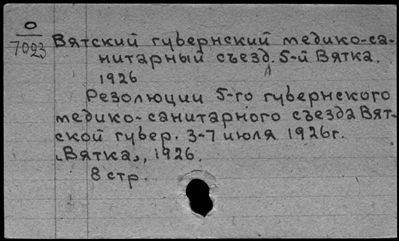 О
7023
Вятский губернский медико-са-
нитарный съезд. 5-й Вятка.
1926
Резолюции 5-го губернского
медико-санитарного съезда Вят-
ской губер. 3-7 июля 1926г.
"Вятка", 1926.
8 стр.